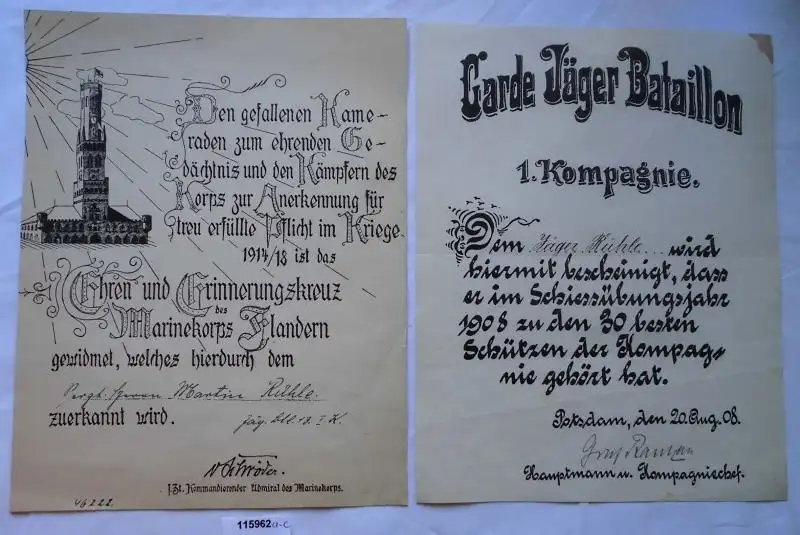 Den gefallenen Kame-
raden zum ehrenden Ge-
dächtnis und den Kämpfern des
Korps zur Anerkennung für
treu erfüllte Pflicht im Kriege
1914/18 ist das
Ehren und Erinnerungskreuz
des
Marinekorps Flandern
gewidmet, welches hierdurch dem
Martin Rühle
zuerkannt wird.
v. Schröder.
z. Zt. Kommandierender Admiral des Marinekorps.
Garde Jäger Bataillon
1. Kompagnie.
Dem Jäger Rühle wird
hiermit bescheinigt, dass
er im Schiessübungsjahr
1908 zu den 30 besten
Schützen der Kompag-
nie gehört hat.
Potsdam, den 20. Aug. 08.
Hauptmann u. Kompagniechef.
115962a-c